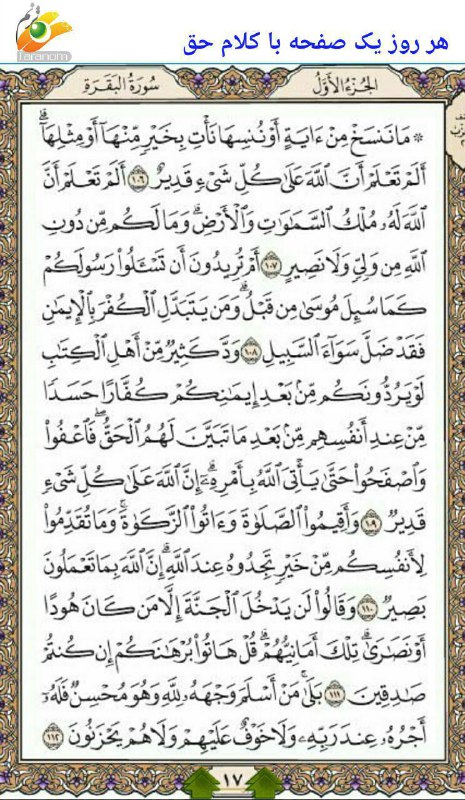 هر روز یک صفحه با کلام حق
faranom
سُورَةُ البَقَرَةِ
الجُزءُ الأَوَّلُ
۞ مَا نَنسَخْ مِنْ ءَايَةٍ أَوْ نُنسِهَا نَأْتِ بِخَيْرٍ مِّنْهَآ أَوْ مِثْلِهَآ ۗ
أَلَمْ تَعْلَمْ أَنَّ ٱللَّهَ عَلَىٰ كُلِّ شَىْءٍ قَدِيرٌ ١٠٦ أَلَمْ تَعْلَمْ أَنَّ
ٱللَّهَ لَهُۥ مُلْكُ ٱلسَّمَٰوَٰتِ وَٱلْأَرْضِ ۗ وَمَا لَكُم مِّن دُونِ
ٱللَّهِ مِن وَلِىٍّ وَلَا نَصِيرٍ ١٠٧ أَمْ تُرِيدُونَ أَن تَسْـَٔلُوا۟ رَسُولَكُمْ
كَمَا سُئِلَ مُوسَىٰ مِن قَبْلُ ۗ وَمَن يَتَبَدَّلِ ٱلْكُفْرَ بِٱلْإِيمَٰنِ
فَقَدْ ضَلَّ سَوَآءَ ٱلسَّبِيلِ ١٠٨ وَدَّ كَثِيرٌ مِّنْ أَهْلِ ٱلْكِتَٰبِ
لَوْ يَرُدُّونَكُم مِّنۢ بَعْدِ إِيمَٰنِكُمْ كُفَّارًا حَسَدًا
مِّنْ عِندِ أَنفُسِهِم مِّنۢ بَعْدِ مَا تَبَيَّنَ لَهُمُ ٱلْحَقُّ ۖ فَٱعْفُوا۟
وَٱصْفَحُوا۟ حَتَّىٰ يَأْتِىَ ٱللَّهُ بِأَمْرِهِۦٓ ۗ إِنَّ ٱللَّهَ عَلَىٰ كُلِّ شَىْءٍ
قَدِيرٌ ١٠٩ وَأَقِيمُوا۟ ٱلصَّلَوٰةَ وَءَاتُوا۟ ٱلزَّكَوٰةَ ۚ وَمَا تُقَدِّمُوا۟
لِأَنفُسِكُم مِّنْ خَيْرٍ تَجِدُوهُ عِندَ ٱللَّهِ ۗ إِنَّ ٱللَّهَ بِمَا تَعْمَلُونَ
بَصِيرٌ ١١٠ وَقَالُوا۟ لَن يَدْخُلَ ٱلْجَنَّةَ إِلَّا مَن كَانَ هُودًا
أَوْ نَصَٰرَىٰ ۗ تِلْكَ أَمَانِيُّهُمْ ۗ قُلْ هَاتُوا۟ بُرْهَٰنَكُمْ إِن كُنتُمْ
صَٰدِقِينَ ١١١ بَلَىٰ مَنْ أَسْلَمَ وَجْهَهُۥ لِلَّهِ وَهُوَ مُحْسِنٌ فَلَهُۥٓ
أَجْرُهُۥ عِندَ رَبِّهِۦ وَلَا خَوْفٌ عَلَيْهِمْ وَلَا هُمْ يَحْزَنُونَ ١١٢
١٧